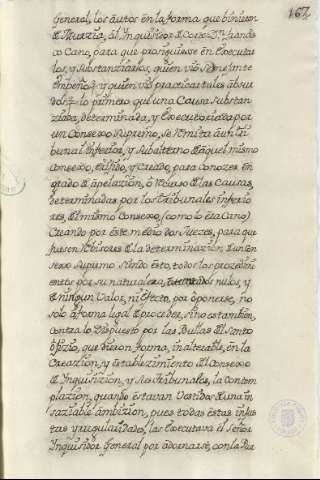 167
General, los autos en la forma que vinieron
de Murzia, al Inquisidor de Corte Dn. Juan de
co Cano, para que prosiguiesse en Executar
los, y Substanziarlos, quien vió semejante
Empeño? y quien vió practicar tales absur
dos? lo primero, que una Causa substan
ziada, determinada, y Executoriada por
un Consexo Supremo, se remita à un tri
bunal Inferior, y subalterno de aquel mismo
Consexo, Exsido, y Creado, para conozer en
grado de apelazion, ò recurso de las Causas,
determinadas por los tribunales inferio
res, el mismo Consexo, (como lo era Cano)
Creando por este medio dos Juezes, para que
fuesen rebisores de la determinazion de un Con
sexo Supremo siendo esto, todos los procedimi
entos por su naturaleza, nulos, y
de ningun Valor, ni efecto, por oponerse, no
solo à forma legal de proceder, sino tambien,
contra lo dispuesto por las Bullas del Santo
ofizio, que dieron forma, inalterable, en la
Creazion, y establezimiento del Consexo
de Inquisizion, y sus tribunales, la Contem
plazion, quando estavan Vestidos de una in
saziable ambizion, pues todas estas injus
tas y irregularidades, las Executava el Señor
Inquisidor General por adornarse, con la Pur